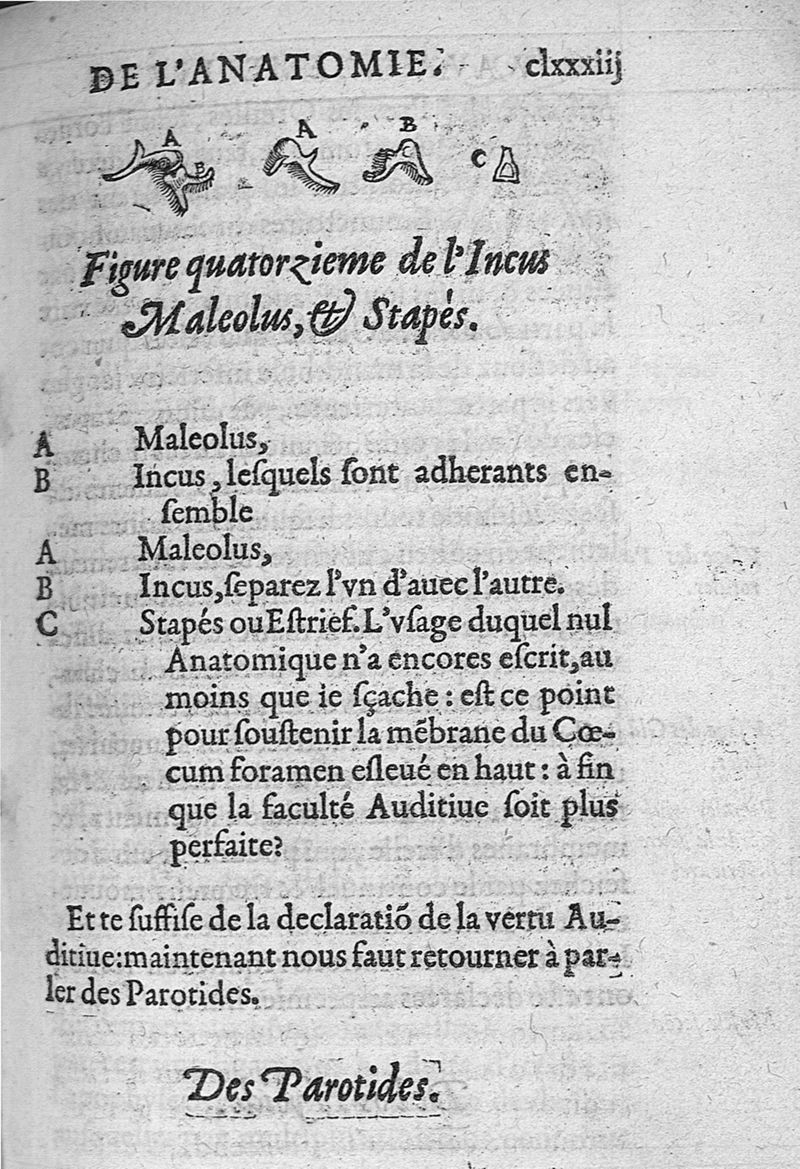 DE L'ANATOMIE. clxxxiij
A B A B C
Figure quatorzieme de l'Incus
Maleolus, & Stapès.
A Maleolus,
B Incus, leſquels ſont adherants en-
ſemble
A Maleolus,
B Incus, ſeparez l'vn d'auec l'autre.
C Stapés ou Eſtrief. L'vſage duquel nul
Anatomique n'a encores eſcrit, au
moins que ie ſçache : eſt ce point
pour ſouſtenir la mēbrane du Cœ-
cum foramen eſleué en haut : à fin
que la faculté Auditiue ſoit plus
perfaite?
Et te ſuffiſe de la declaratiõ de la vertu Au-
ditiue: maintenant nous faut retourner à par-
ler des Parotides.
Des Parotides.